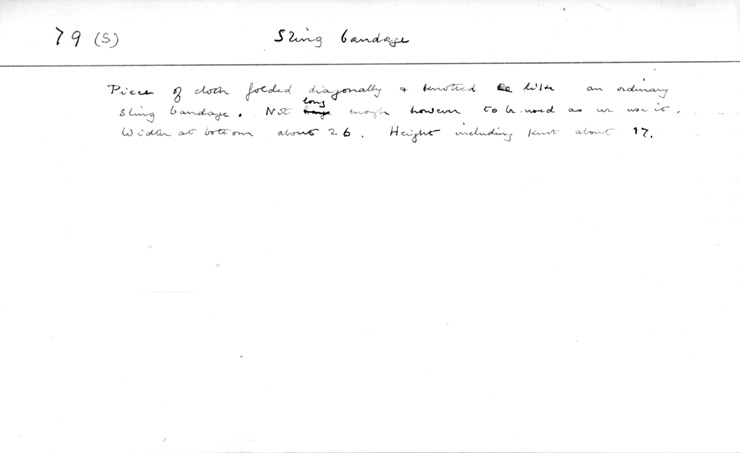 79 (S) Sling bandage
Piece of cloth folded diagonally & knotted like an ordinary
sling bandage. Not long enough however to be used as we use it.
Width at bottom about 26. Height including knot about 17.